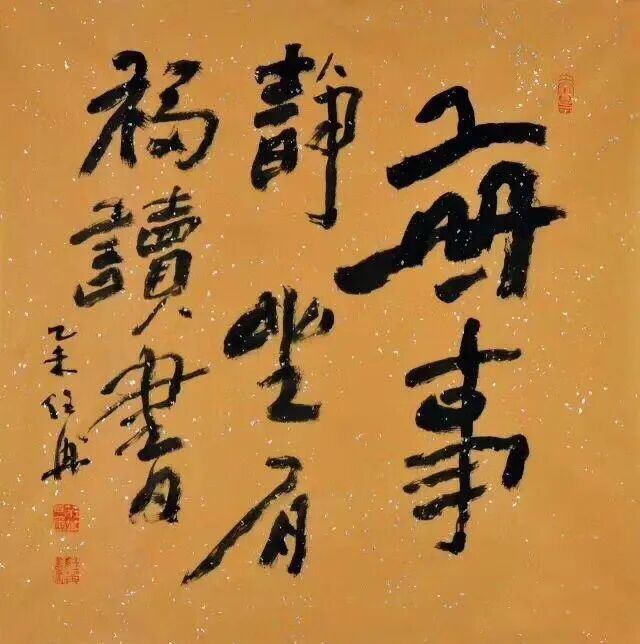 無事
靜坐有
福讀書
乙未任舟